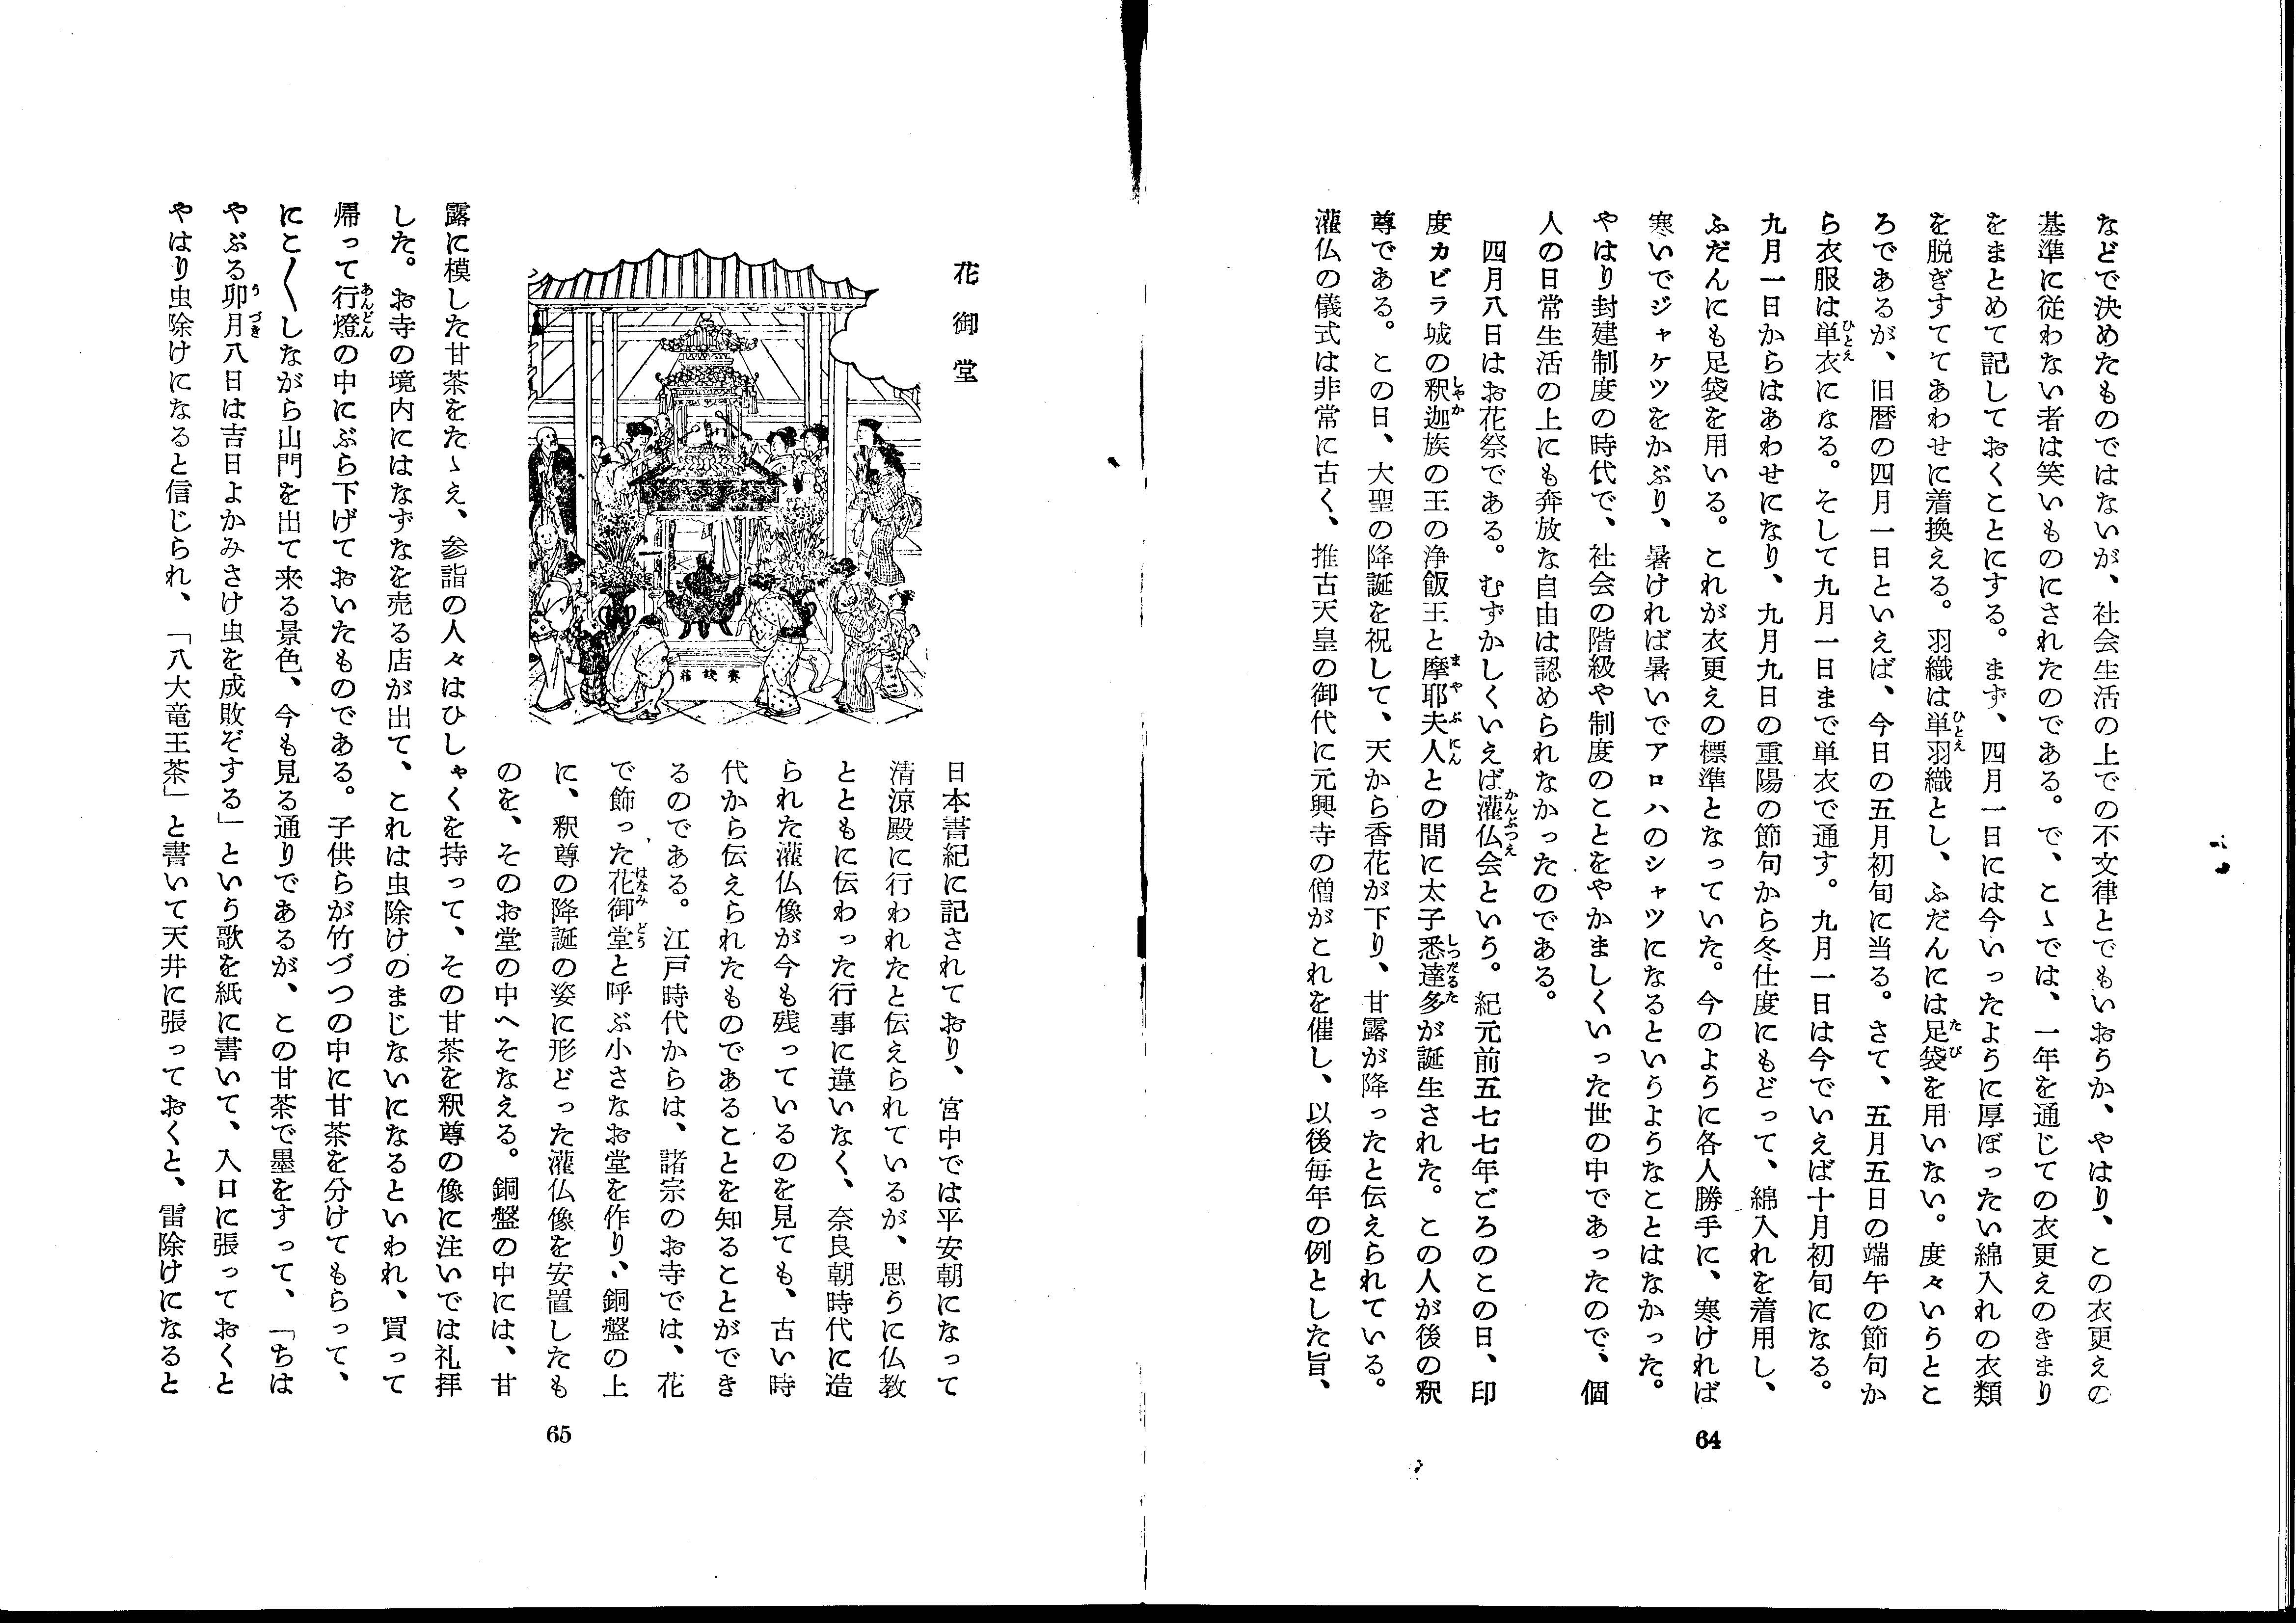 などで決めたものではないが、社会生活の上での不文律とでもいおうか、やはり、この衣更えの
基準に従わない者は笑いものにされたのである。で、こゝでは、一年を通じての衣更えのきまり
をまとめて記しておくことにする。まず、四月一日には今いったように厚ぼったい綿入れの衣類
を脱ぎすててあわせに着換える。羽織は単羽織とし、ふだんには足袋を用いない。度々いうとこ
ろであるが、旧暦の四月一日といえば、今日の五月初旬に当る。さて、五月五日の端午の節句か
ら衣服は単衣になる。そして九月一日まで単衣で通す。九月一日は今でいえば十月初旬になる。
九月一日からはあわせになり、九月九日の重陽の節句から冬仕度にもどって、綿入れを着用し、
ふだんにも足袋を用いる。これが衣更えの標準となっていた。今のように各人勝手に、寒ければ
寒いでジャケツをかぶり、暑ければ暑いでアロハのシャツになるというようなことはなかった。
やはり封建制度の時代で、社会の階級や制度のことをやかましくいった世の中であったので、個
人の日常生活の上にも奔放な自由は認められなかったのである。
四月八日はお花祭である。むずかしくいえば灌仏会という。紀元前五七七年ごろのこの日、印
度カビラ城の釈迦族の王の浄飯王と摩耶夫人との間に太子悉達多が誕生された。この人が後の釈
尊である。この日、大聖の降誕を祝して、天から香花が下り、甘露が降ったと伝えられている。
灌仏の儀式は非常に古く、推古天皇の御代に元興寺の僧がこれを催し、以後毎年の例とした旨、
64
花御堂
賽銭箱
日本書紀に記されており、宮中では平安朝になって
清涼殿に行われたと伝えられているが、思うに仏教
とともに伝わった行事に違いなく、奈良朝時代に造
られた灌仏像が今も残っているのを見ても、古い時
代から伝えられたものであることを知ることができ
るのである。江戸時代からは、諸宗のお寺では、花
で飾った花御堂と呼ぶ小さなお堂を作り、銅盤の上
に、釈尊の降誕の姿に形どった灌仏像を安置したも
のを、そのお堂の中へそなえる。銅盤の中には、甘
露に模した甘茶をたゝえ、参詣の人々はひしゃくを持って、その甘茶を釈尊の像に注いでは礼拝
した。お寺の境内にはなずなを売る店が出て、これは虫除けのまじないになるといわれ、買って
帰って行燈の中にぶら下げておいたものである。子供らが竹づつの中に甘茶を分けてもらって、
にこ〱しながら山門を出て来る景色、今も見る通りであるが、この甘茶で墨をすって、「ちは
やぶる卯月八日は吉日よかみさけ虫を成敗ぞする」という歌を紙に書いて、入口に張っておくと
やはり虫除けになると信じられ、「八大竜王茶」と書いて天井に張っておくと、雷除けになると
65